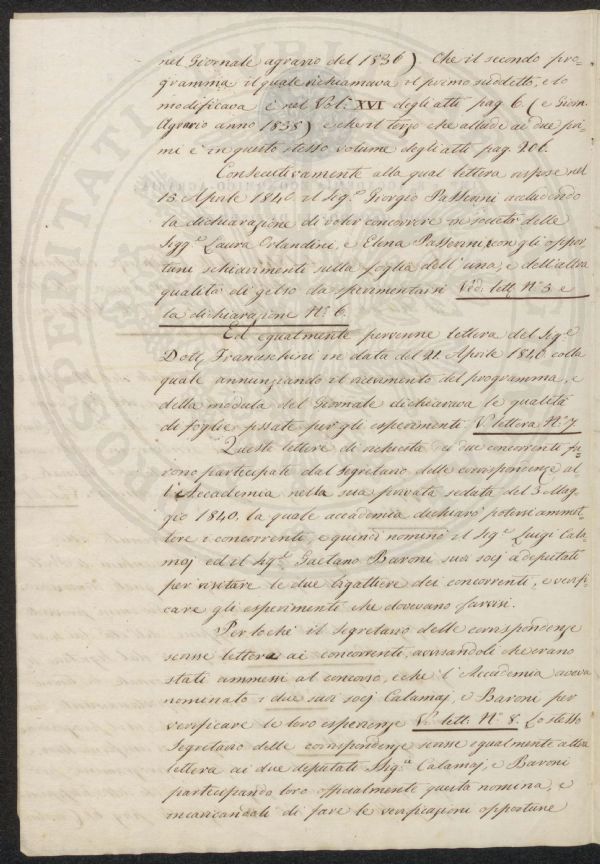 nel Giornale agrario del 1836). Che il secondo pro-
gramma il quale richiamava il primo suddetto, e lo
modificava è nel Vol: XVI degli atti pag. 6. (e Giorn.
Agrario anno 1838) e che il terzo che allude ai due pri-
mi è in questo stesso volume degli atti pag. 206.
Consecutivamente alla qual lettera rispose nel
15 Aprile 1840. il Sig.r Giorgio Passerini accludendo
la dichiarazione di voler concorrere in società delle
Sigg.e Laura Orlandini, e Elena Passerini, con gli oppor-
tuni schiarimenti sulla foglia dell'una, e dell'altra
qualità di gelso da sperimentarsi Ved. lett. N.o 5 e
la dichiarazione N.o 6.
Ed egualmente pervenne lettera del Sig.r
Dott. Franceschini in data del 21. Aprile 1840 colla
quale annunziando il ricevimento del programma, e
della modula del Giornale dichiarava le qualità
di foglie fissate per gli esperimenti V. lettera N.o 7
Queste lettere di richiesta ai due concorrenti fu-
rono participate dal Segretario delle corrispondenze al
l'Accademia nella sua privata seduta del 3 Mag-
gio 1840. la quale accademia dichiarò potersi ammet-
tere i concorrenti, e quindi nominò il Sig.r Luigi Cala-
maj ed il Sig.r Gaetano Baroni suoi socj a deputati
per visitare le due bigattiere dei concorrenti, e verifi-
care gli esperimenti che dovevano farvisi.
Perloché il Segretario delle corrispondenze
scrisse lettera ai concorrenti, avvisandoli che erano
stati ammessi al concorso, e che l'Accademia aveva
nominato i due suoi socj Calamaj, e Baroni per
verificare le loro esperienze V. lett. N.o 8. Lo stesso
Segretario delle corrispondenze scrisse egualmente altra
lettera ai due deputati Sigg.ri Calamaj, e Baroni
participando loro officialmente questa nomina, e
incaricandoli di fare le verificazioni opportune